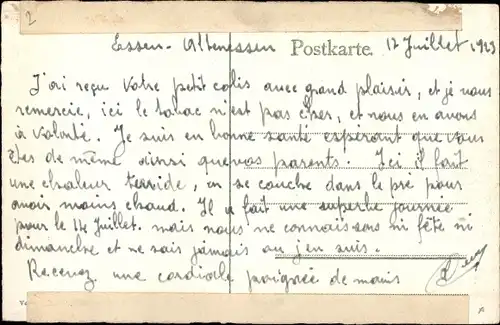 2
Essen-Altenessen Postkarte. 12 Juillet 1923
J'ai reçu votre petit colis avec grand plaisir, et je vous
remercie, ici le tabac n'est pas cher, et nous en avons
à volonté. Je suis en bonne santé espérant que vous
êtes de même ainsi que vos parents. Ici il fait
une chaleur torride, on se couche dans le pré pour
avoir moins chaud. Il a fait une superbe journée
pour le 14 Juillet. mais nous ne connaissons ni fête ni
dimanche et ne sais jamais ou j'en suis.
Recevez une cordiale poignée de mains